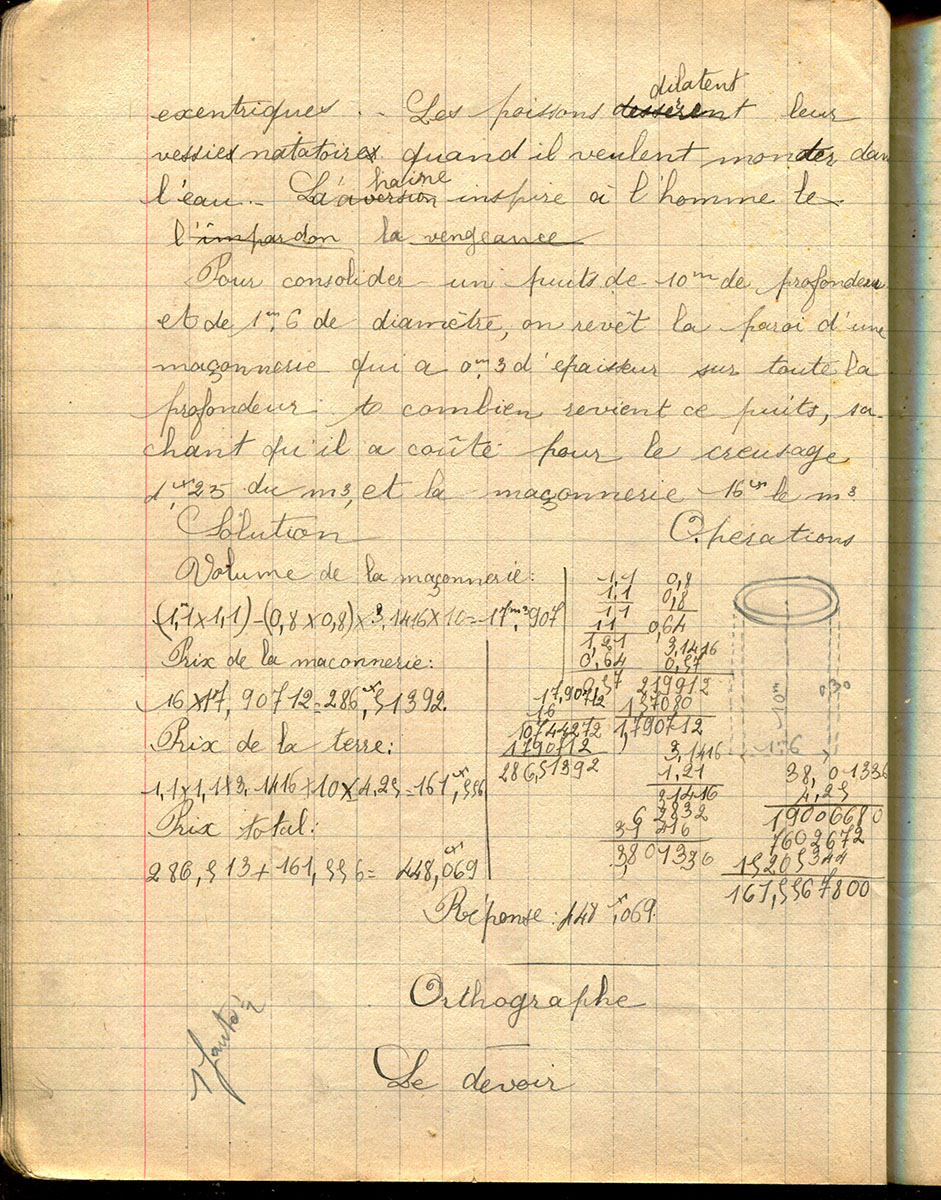 dilatent
exentriques. Les poissons desserent leur
vessies natatoires quand il veulent monter dan
haine
l'eau. La aversion inspire à l'homme le
l'impardon la vengeance
Pour consolider un puits de 10m de profondeur
et de 1m,6 de diamètre, on revêt la paroi d'une
maçonnerie qui a 0m,3 d'epaisseur sur toute la
profondeur. A combien revient ce puits, sa-
chant qu'il a coûté pour le creusage
4fr,25 du m3, et la maçonnerie 16fr le m3
Solution Opérations
Volume de la maçonnerie:
(1,1×1,1)-(0,8×0,8)×3,1416×10=17m3,907
Prix de la maconnerie:
16×17,90712=286fr,51392.
Prix de la terre:
1,1×1,1×3,1416×10×4,25=161fr,556
Prix total:
286,513+161,556= 448fr,069
1,1 0,8
1,1 0,8
1 1 0,64
1 1
1,21 3,1416
0,64 0,57
0,57 219912
157080
1,790712
17,90712
16
10744272
1790712
28651392
3,1416
1,21
31416
6 2832
31 416
3,801336
38,01336
4,25
19006680
7602672
15205344
161,5567800
10m
0,30
1m6
Réponse: 448fr,069.
Orthographe
1 faute ½
Le devoir